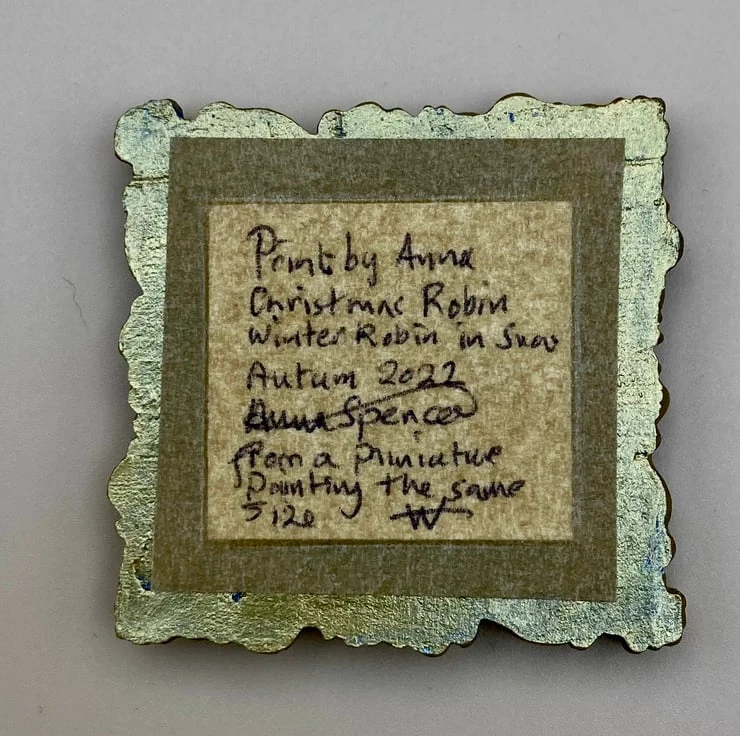 Print by Anna
Christmas Robin
Winter Robin in Snow
Autum 2022
Anna Spencer
from a miniature
Painting the same
size